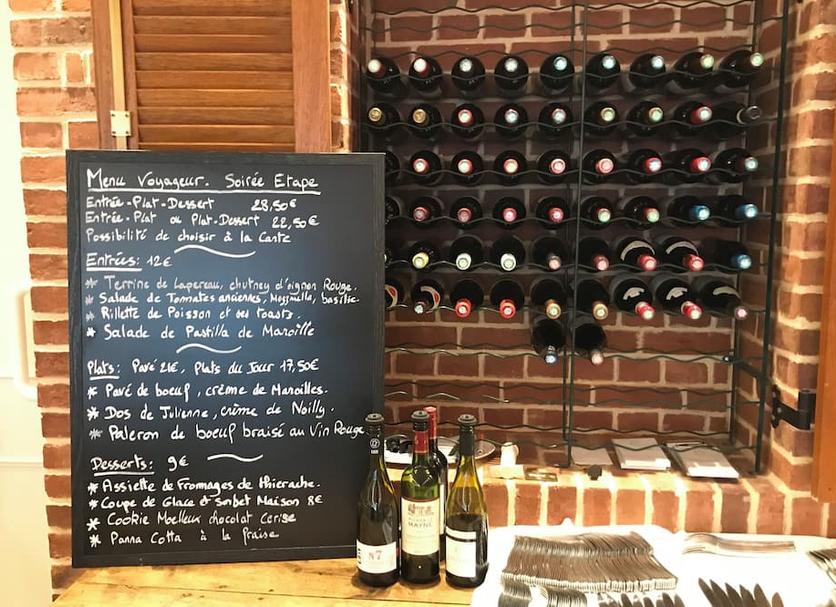 Menu Voyageur. Soirée Etape
Entrée-Plat-Dessert 28,50€
Entrée-Plat ou Plat-Dessert 22,50€
Possibilité de choisir à la Carte
Entrées: 12€
* Terrine de Lapereau, chutney d'oignon Rouge.
* Salade de Tomates anciennes, Mozzarella, basilic.
* Rillette de Poisson et ses toasts.
* Salade de Pastilla de Maroille
Plats: Pavé 21€, Plats du Jour 17,50€
* Pavé de boeuf, crème de Maroilles.
* Dos de Julienne, crème de Noilly.
* Paleron de boeuf braisé au Vin Rouge
Desserts: 9€
* Assiette de Fromages de Thiérache.
* Coupe de Glace et Sorbet Maison 8€
* Cookie Moelleux chocolat Cerise
* Panna Cotta à la fraise
87
MAYNE